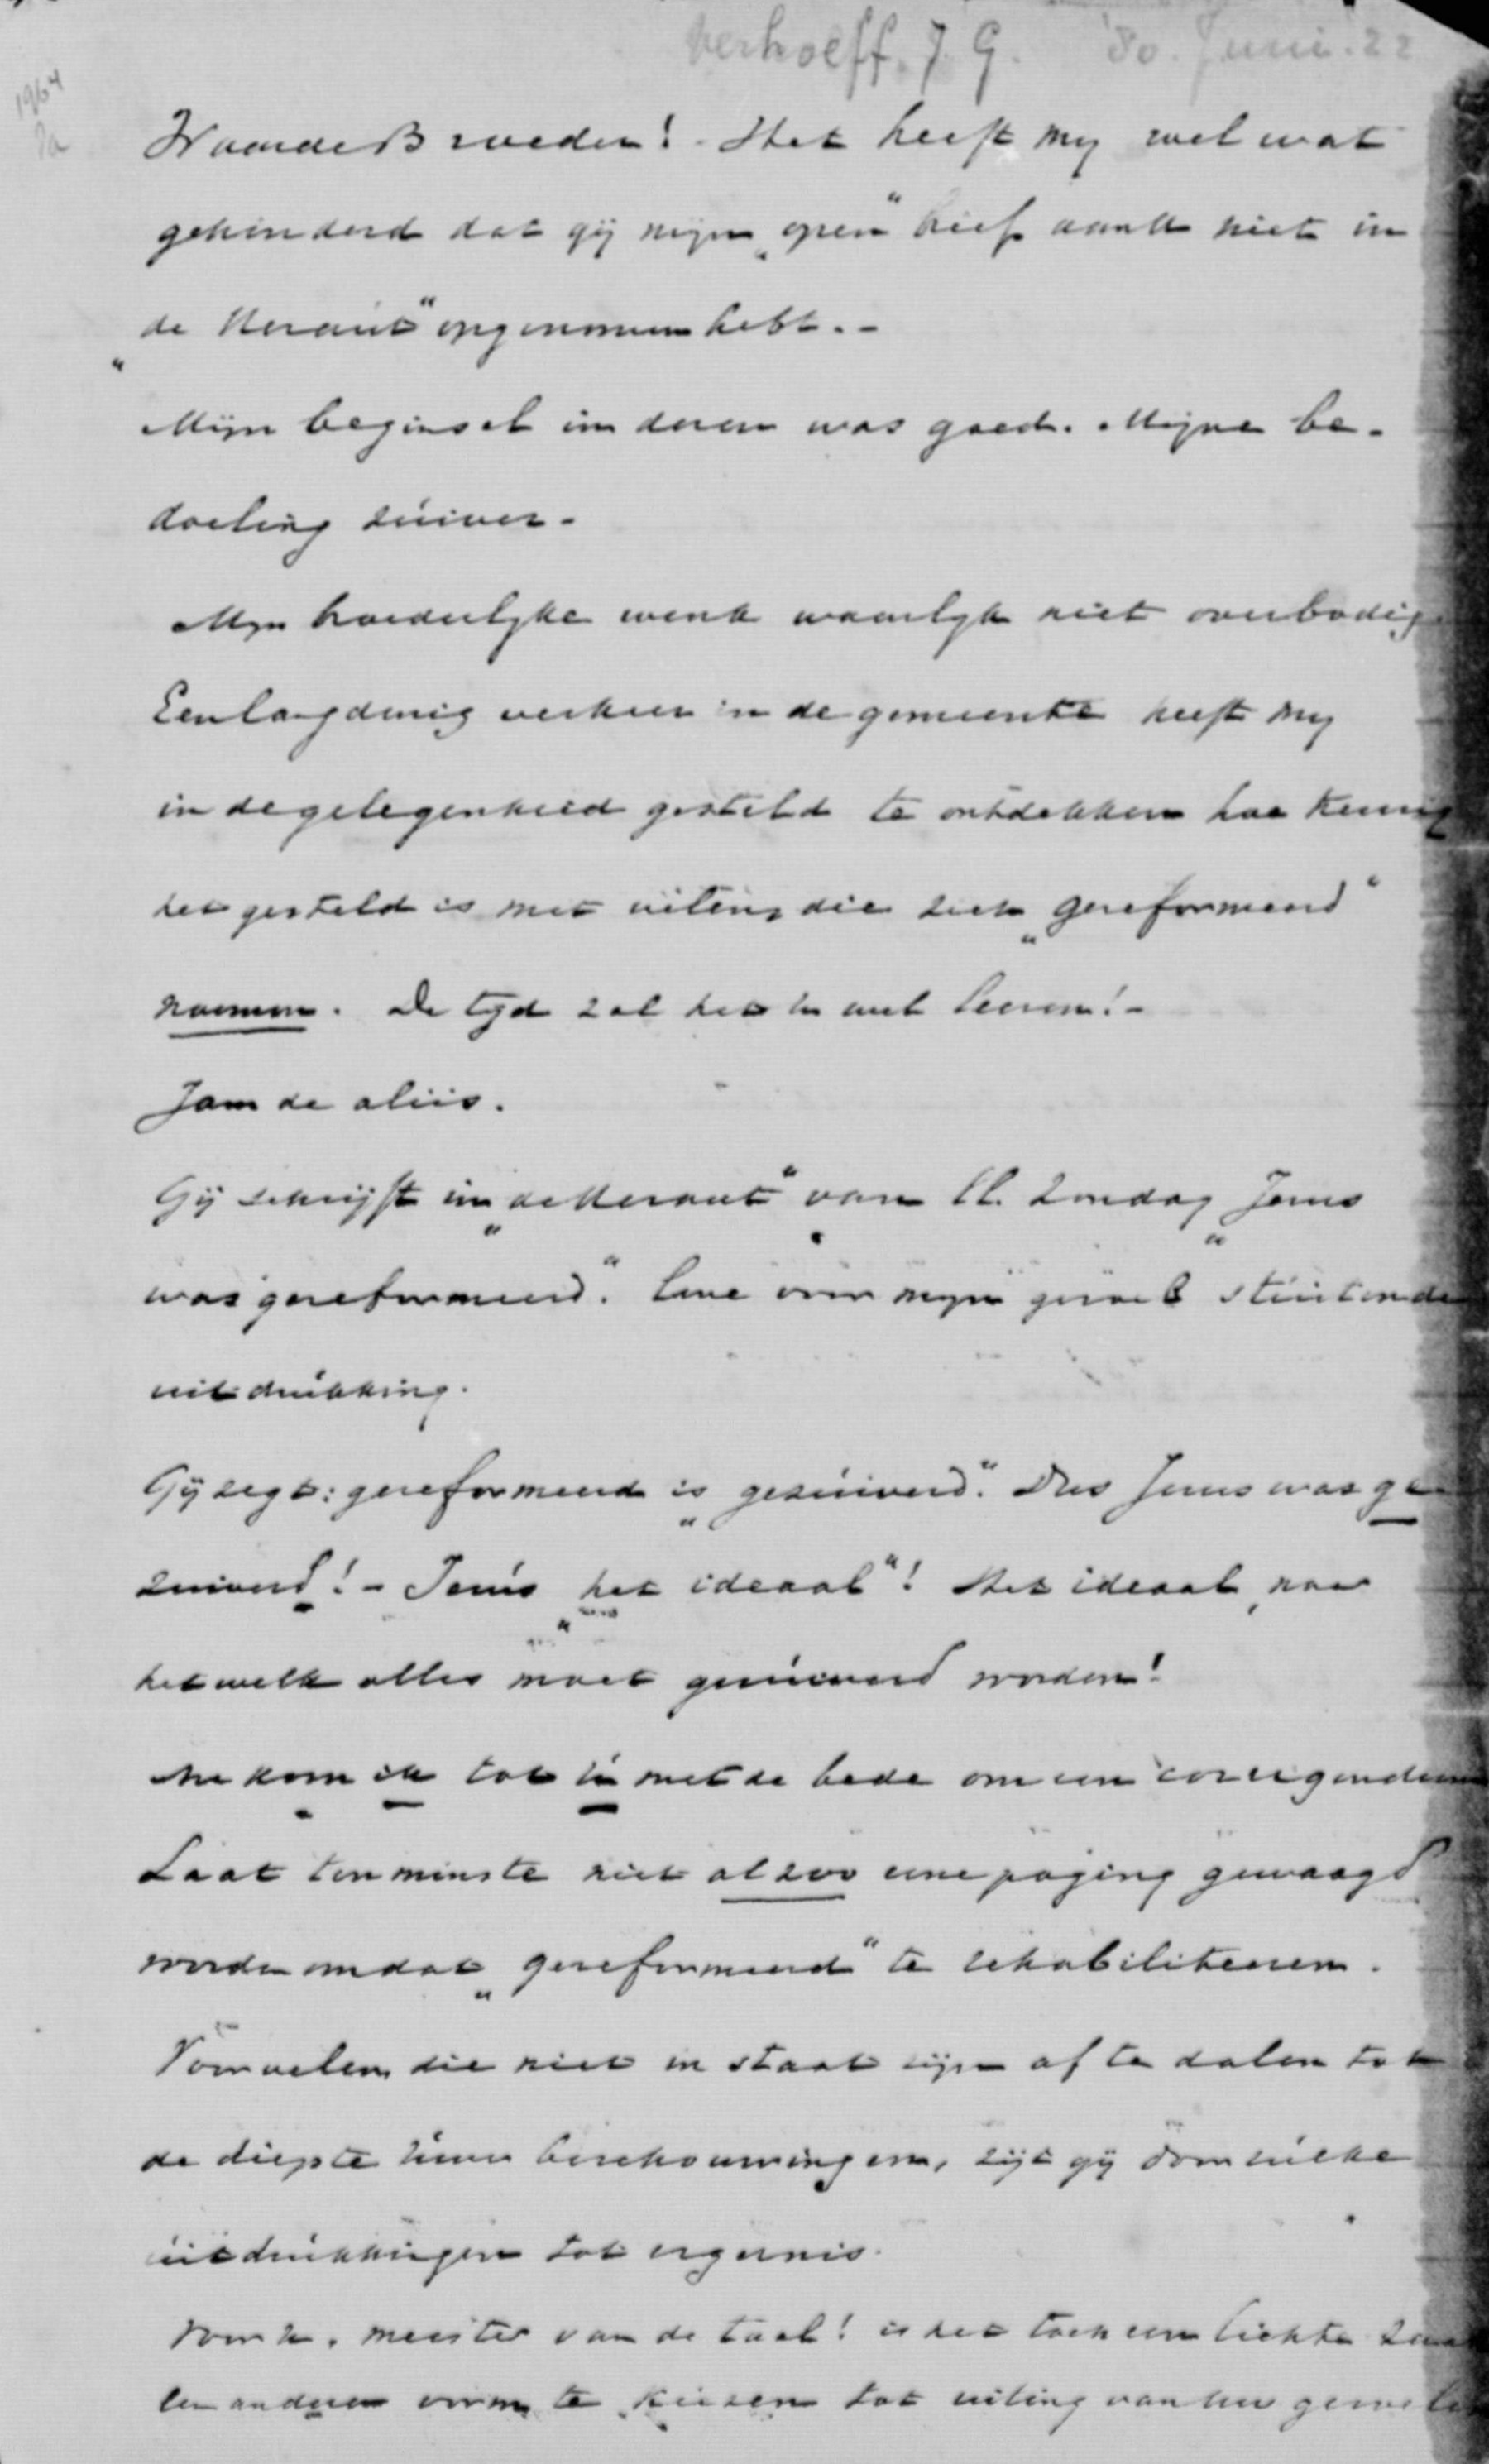 Verhoeff. J G. 30. Juni. 22
1964
Waarde Broeder! - Het heeft my wel wat
gehinderd dat gij mijn „open" brief aan U niet in
„de Heraut" opgenomen hebt. -
Mijn beginsel in dezen was goed. Mijne be-
doeling zuiver -
Mijn broederlyke wenk waarlyk niet overbodig
Een langdurig verkeer in de gemeente heeft my
in de gelegenheid gesteld te ontdekken hoe
het gesteld is met die zich „gereformeerd"
noemen. De tyd zal het U wel leeren! -
Jam de aliis.
Gij schrijft in „de Heraut" van ll. Zondag „Jezus
was gereformeerd." Eene voor mijn gevoel stuitende
uitdrukking.
Gij zegt: gereformeerd is „gezuiverd." Dus Jezus was ge-
zuiverd! - Jezus „het ideaal"! Het ideaal, naar
hetwelk alles moet gezuiverd worden!
Nu kom ik tot U met de bede om een corrigendum
Laat ten minste niet alzoo eene poging gewaagd
worden om dat „gereformeerd" te rehabiliteeren.
Voor velen die niet in staat zijn af te dalen tot
de diepte uwer beschouwingen, zijt gij door zulke
uitdrukkingen tot ergernis.
Voor U, meester van de taal! is het toch een lichte zaak
een anderen vorm te kiezen tot uiting van uw gevoelen